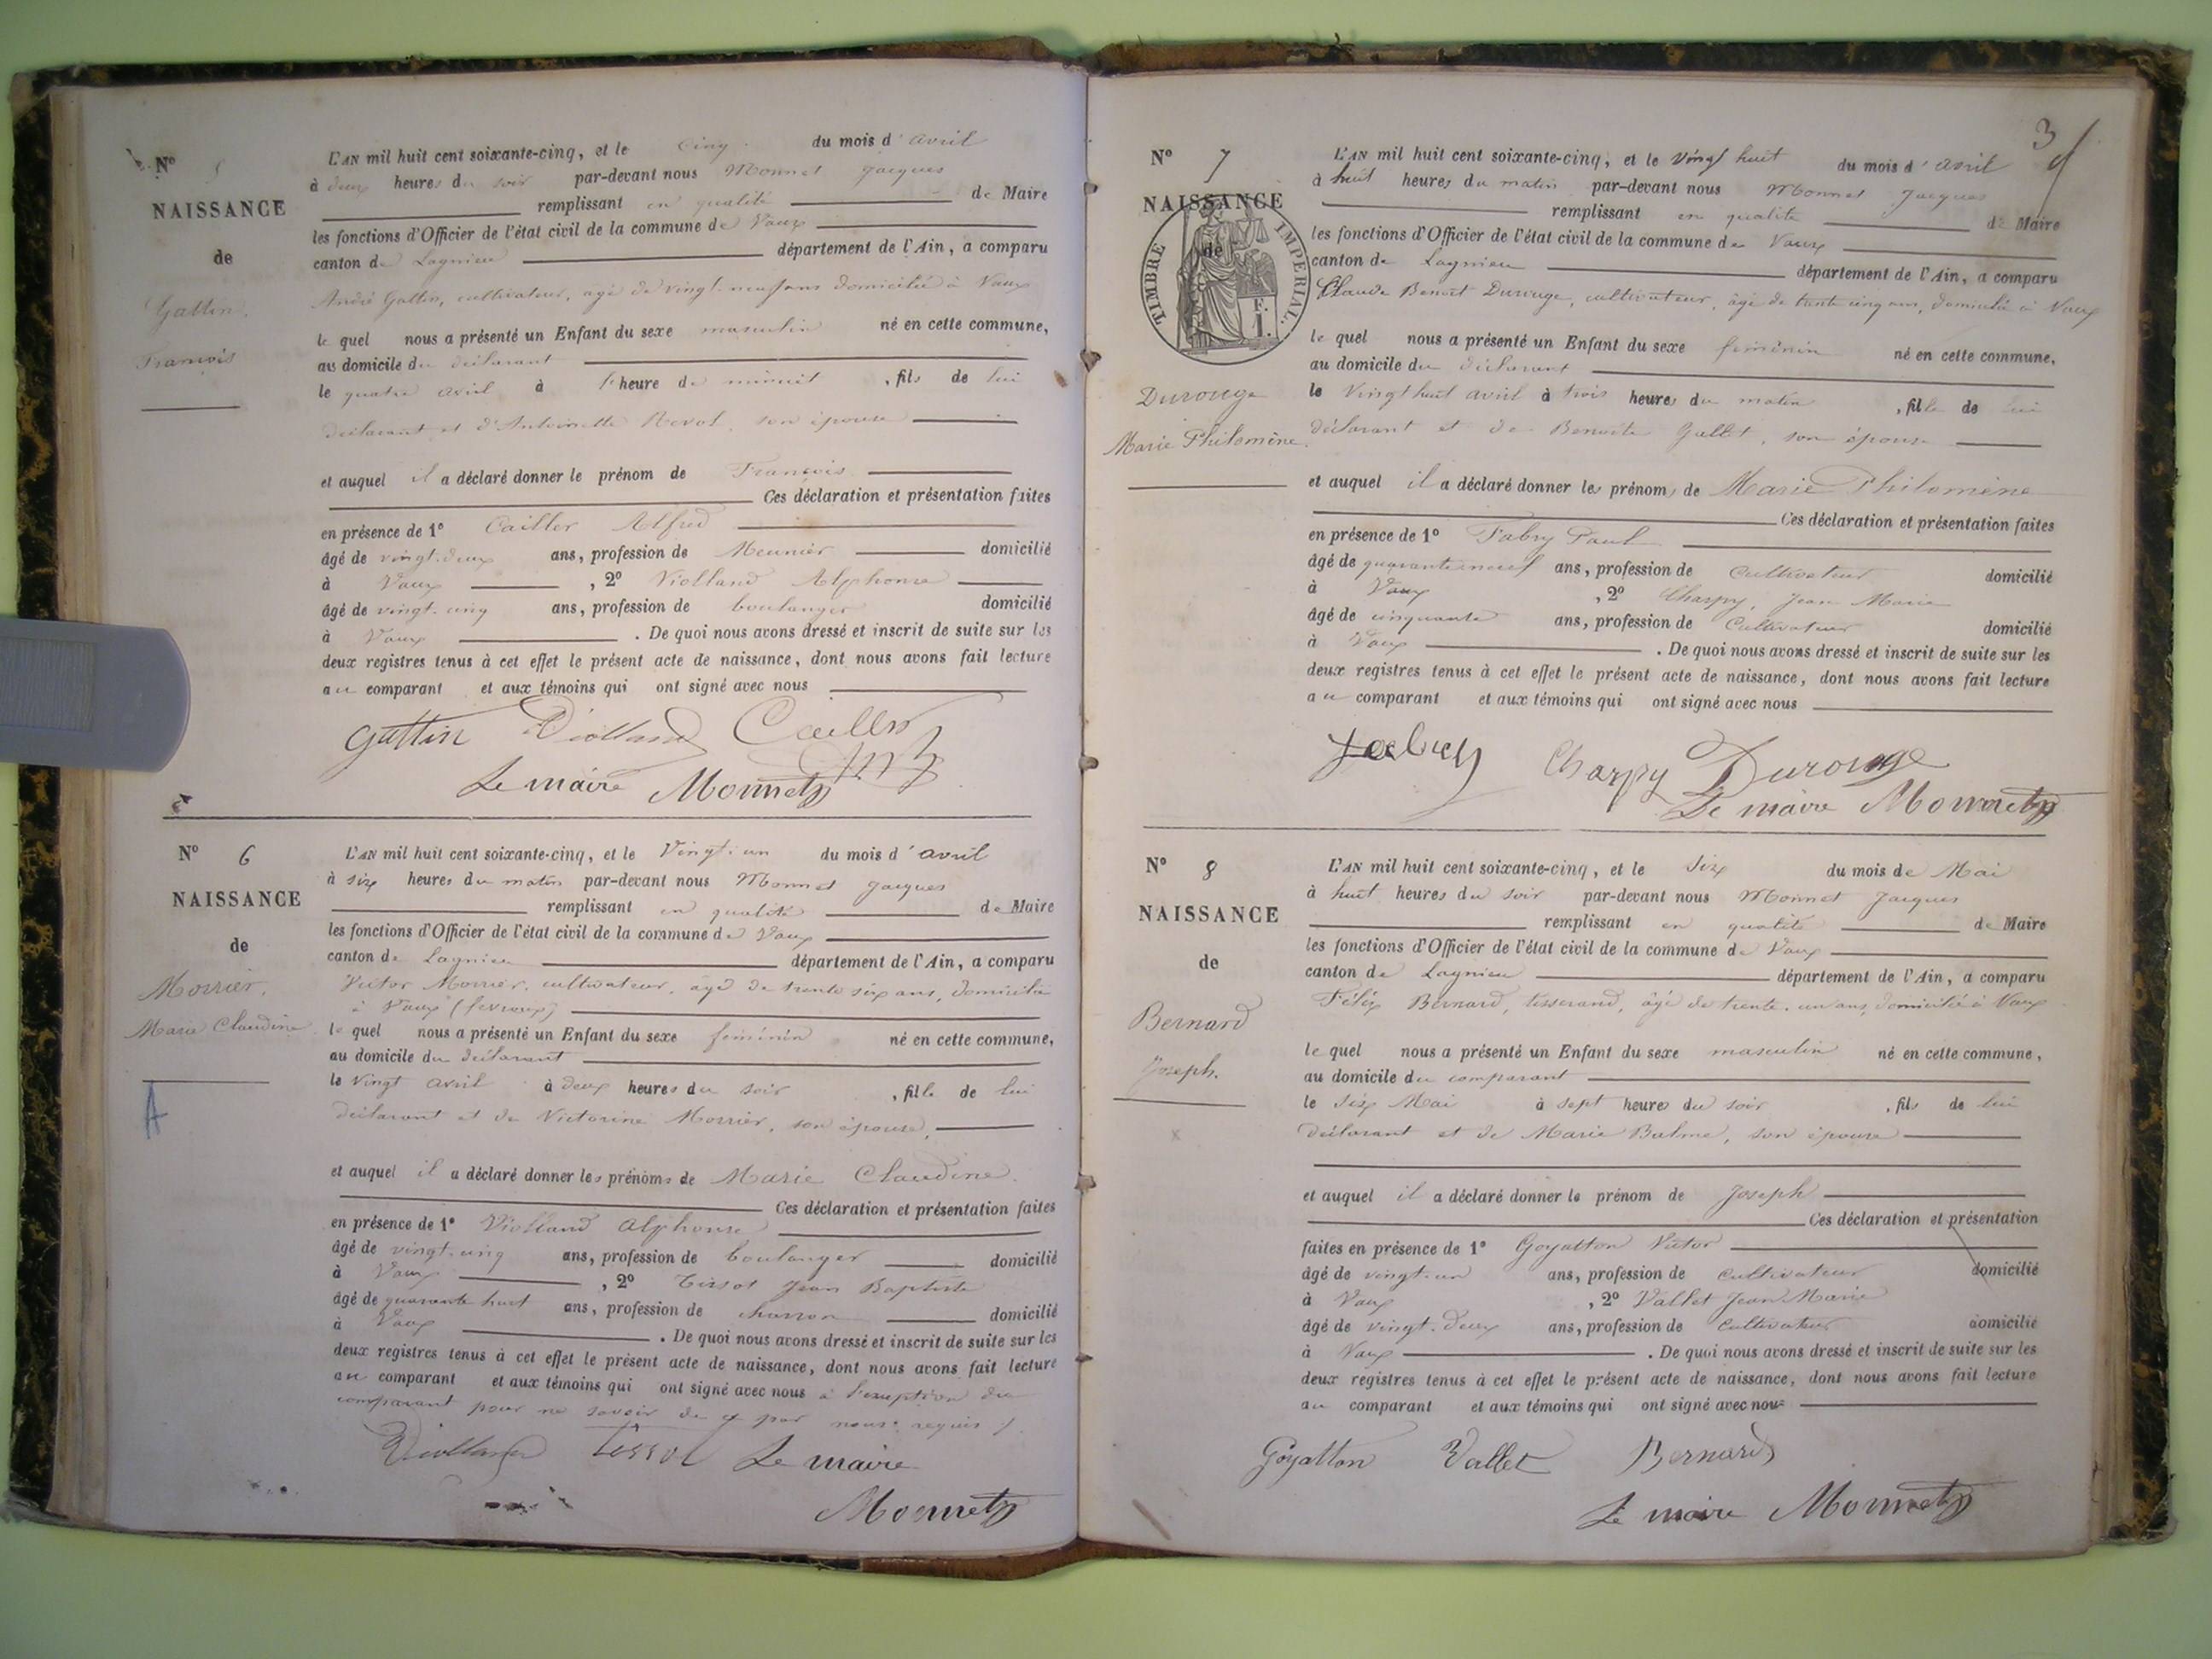 N° 5
NAISSANCE
de
Gattin,
François
L'AN mil huit cent soixante-cinq, et le cinq du mois d'avril
à deux heures du soir par-devant nous Monnet Jacques
remplissant en qualité de Maire
les fonctions d'Officier de l'état civil de la commune de Vaux
canton de Lagnieu département de l'Ain, a comparu
André Gattin, cultivateur, âgé de vingt-neuf ans domicilié à Vaux
le quel nous a présenté un Enfant du sexe masculin né en cette commune,
au domicile du déclarant
le quatre avril à l'heure de minuit, fils de lui
déclarant et d'Antoinette Revol, son épouse
et auquel il a déclaré donner le prénom de François
Ces déclaration et présentation faites
en présence de 1° Cailler Alfred
âgé de vingt-deux ans, profession de Meunier domicilié
à Vaux, 2° Violland Alphonse
âgé de vingt-cinq ans, profession de boulanger domicilié
à Vaux. De quoi nous avons dressé et inscrit de suite sur les
deux registres tenus à cet effet le présent acte de naissance, dont nous avons fait lecture
au comparant et aux témoins qui ont signé avec nous
Gattin Violland Cailler
Le maire Monnet
N° 6
NAISSANCE
de
Morrier,
Marie Claudine
A
L'AN mil huit cent soixante-cinq, et le Vingt-un du mois d'avril
à six heures du matin par-devant nous Monnet Jacques
remplissant en qualité de Maire
les fonctions d'Officier de l'état civil de la commune de Vaux
canton de Lagnieu département de l'Ain, a comparu
Victor Morrier, cultivateur, âgé de trente six ans, domicilié
à Vaux (fevroux)
le quel nous a présenté un Enfant du sexe féminin né en cette commune,
au domicile du déclarant
le vingt avril à deux heures du soir, fille de lui
déclarant et de Victorine Morrier, son épouse,
et auquel il a déclaré donner les prénoms de Marie Claudine.
Ces déclaration et présentation faites
en présence de 1° Violland Alphonse
âgé de vingt-cinq ans, profession de boulanger domicilié
à Vaux, 2° Tissot Jean Baptiste
âgé de quarante huit ans, profession de charron domicilié
à Vaux. De quoi nous avons dressé et inscrit de suite sur les
deux registres tenus à cet effet le présent acte de naissance, dont nous avons fait lecture
au comparant et aux témoins qui ont signé avec nous à l'exception du
comparant pour ne savoir de ce par nous requis
Violland Tissot Le maire
Monnet
3
N° 7
NAISSANCE
de
TIMBRE IMPERIAL.
F.
1.
Durouge
Marie Philomène.
L'AN mil huit cent soixante-cinq, et le vingt huit du mois d'avril
à huit heures du matin par-devant nous Monnet Jacques
remplissant en qualité de Maire
les fonctions d'Officier de l'état civil de la commune de Vaux
canton de Lagnieu département de l'Ain, a comparu
Claude Benoît Durouge, cultivateur, âgé de trente cinq ans, domicilié à Vaux
le quel nous a présenté un Enfant du sexe féminin né en cette commune,
au domicile du déclarant
le vingt huit avril à trois heures du matin, fille de lui
déclarant et de Benoîte Gullet, son épouse
et auquel il a déclaré donner les prénoms de Marie Philomène
Ces déclaration et présentation faites
en présence de 1° Fabry Paul
âgé de quarante neuf ans, profession de cultivateur domicilié
à Vaux, 2° Charpy, Jean Marie
âgé de cinquante ans, profession de Cultivateur domicilié
à Vaux. De quoi nous avons dressé et inscrit de suite sur les
deux registres tenus à cet effet le présent acte de naissance, dont nous avons fait lecture
au comparant et aux témoins qui ont signé avec nous
Charpy Durouge
Le maire Monnet
N° 8
NAISSANCE
de
Bernard
Joseph.
L'AN mil huit cent soixante-cinq, et le Six du mois de Mai
à huit heures du soir par-devant nous Monnet Jacques
remplissant en qualité de Maire
les fonctions d'Officier de l'état civil de la commune de Vaux
canton de Lagnieu département de l'Ain, a comparu
Félix Bernard, tisserand, âgé de trente-un ans, domicilié à Vaux
le quel nous a présenté un Enfant du sexe masculin né en cette commune,
au domicile du comparant
le six Mai à sept heures du soir, fils de lui
déclarant et de Marie Balme, son épouse
et auquel il a déclaré donner le prénom de Joseph
Ces déclaration et présentation
faites en présence de 1° Goyatton Victor
âgé de vingt-un ans, profession de cultivateur domicilié
à Vaux, 2° Vallet Jean Marie
âgé de vingt-deux ans, profession de cultivateur domicilié
à Vaux. De quoi nous avons dressé et inscrit de suite sur les
deux registres tenus à cet effet le présent acte de naissance, dont nous avons fait lecture
au comparant et aux témoins qui ont signé avec nous
Goyatton Vallet Bernard
Le maire Monnet